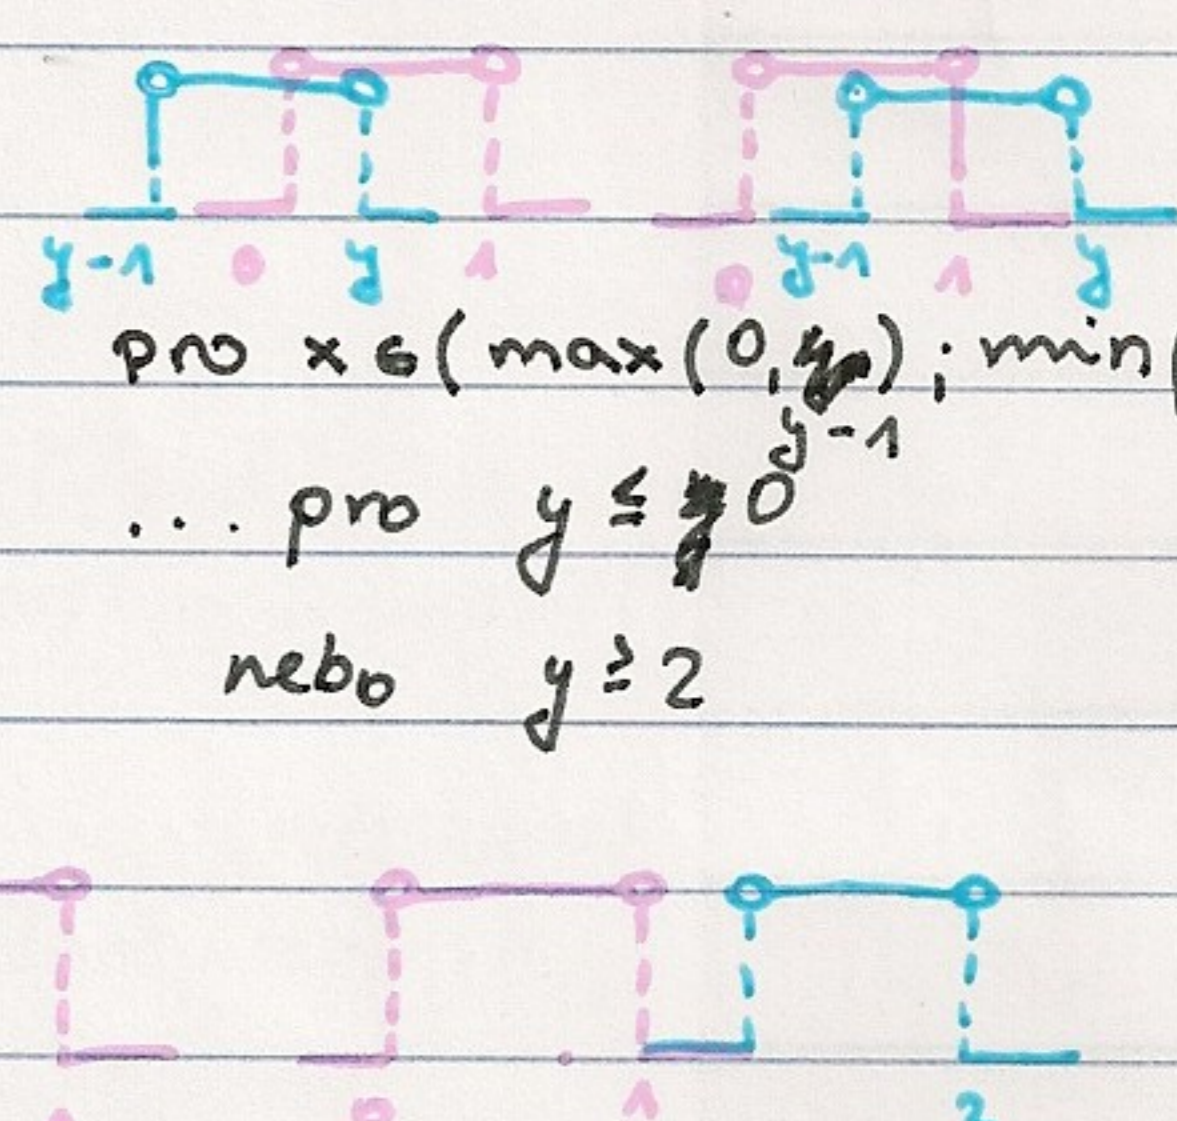 y-1 0 y 1 0 y-1 1 y
pro x ∈ (max(0, y-1); min(
... pro y ≤ 0
nebo y ≥ 2
1 2